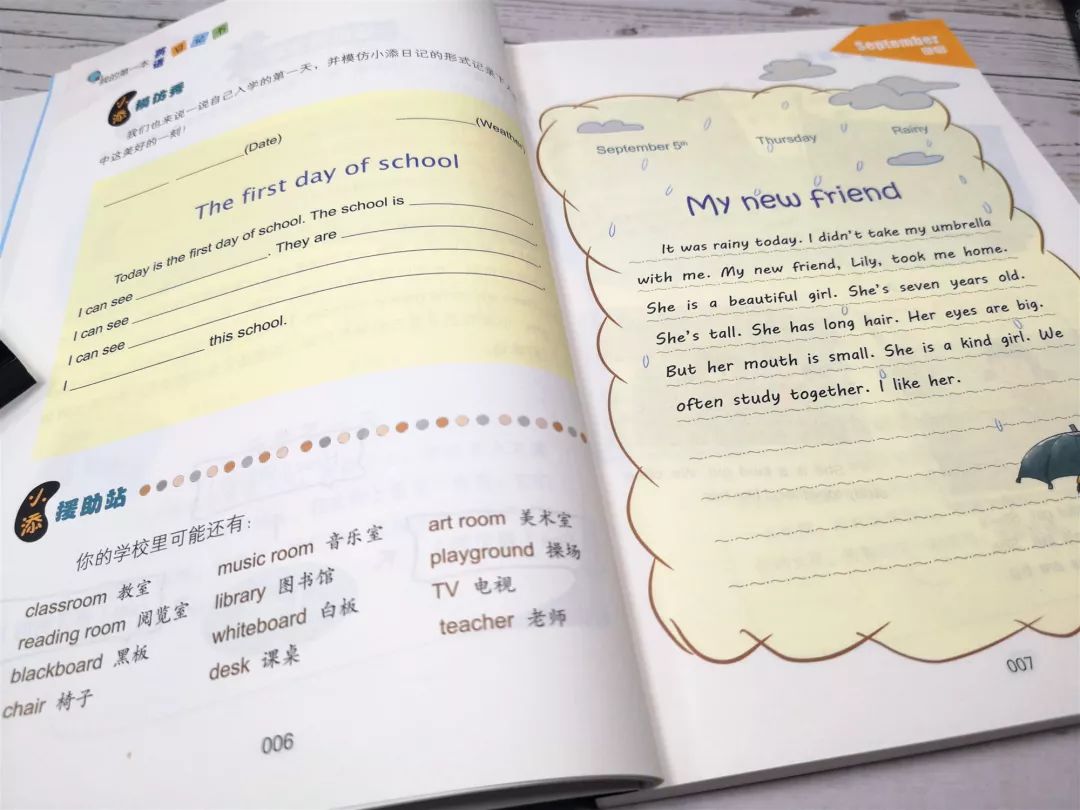 我的第一本 英语日记书
小添 模仿秀
我们也来说一说自己入学的第一天，并模仿小添日记的形式记录下
中这美好的一刻！
(Date) (Weather)
The first day of school
Today is the first day of school. The school is
I can see . They are
I can see
I can see
I this school.
小添 援助站
你的学校里可能还有：
classroom 教室 music room 音乐室 art room 美术室
reading room 阅览室 library 图书馆 playground 操场
blackboard 黑板 whiteboard 白板 TV 电视
chair 椅子 desk 课桌 teacher 老师
006
September
September 5th Thursday Rainy
My new friend
It was rainy today. I didn't take my umbrella
with me. My new friend, Lily, took me home.
She is a beautiful girl. She's seven years old.
She's tall. She has long hair. Her eyes are big.
But her mouth is small. She is a kind girl. We
often study together. I like her.
007